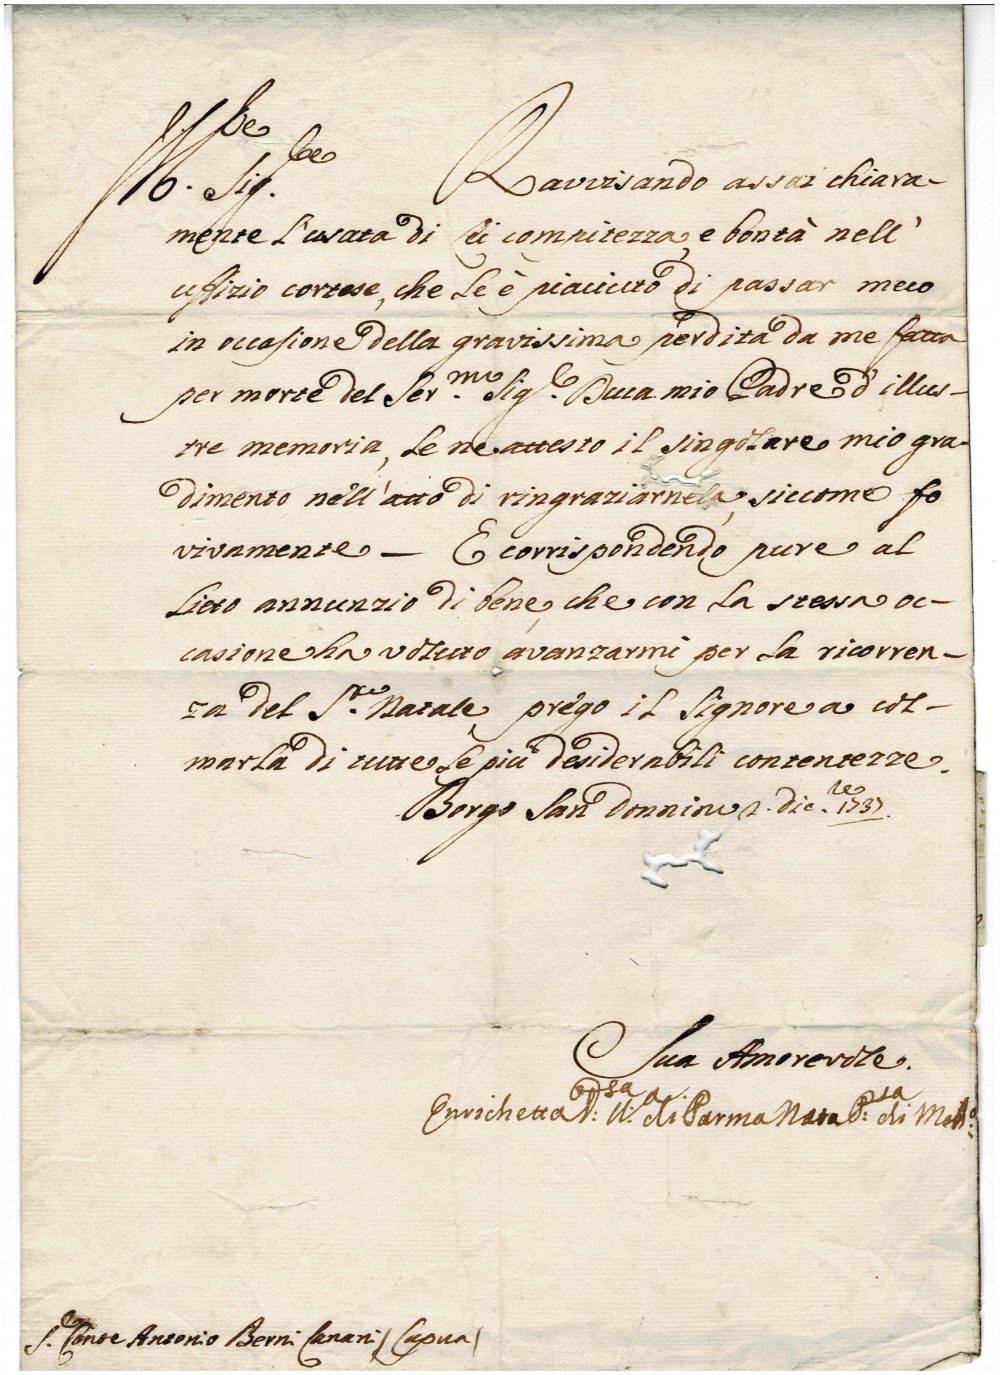 Ill.re Sig.re Ravvisando assai chiara-
mente l'usata di Lei compitezza, e bontà nell'
uffizio cortese, che Le è piaciuto di passar meco
in occasione della gravissima perdita da me fatta
per morte del Ser.mo Sig.r Duca mio Padre d'illus-
tre memoria, Le ne attesto il singolare mio gra-
dimento nell'atto di ringraziarnela, siccome fo
vivamente — E corrispondendo pure al
lieto annunzio di bene, che con la stessa oc-
casione ha voluto avanzarmi per la ricorren-
za del S.to Natale, prego il Signore a col-
marla di tutte le più desiderabili contentezze.
Borgo San Donnino 2. dic.re 1737.
Sua Amorevole.
Enrichetta D:sa V:a di Parma Nata P:sa di Mod:a
S.r Conte Antonio Berni Canani (Capua)